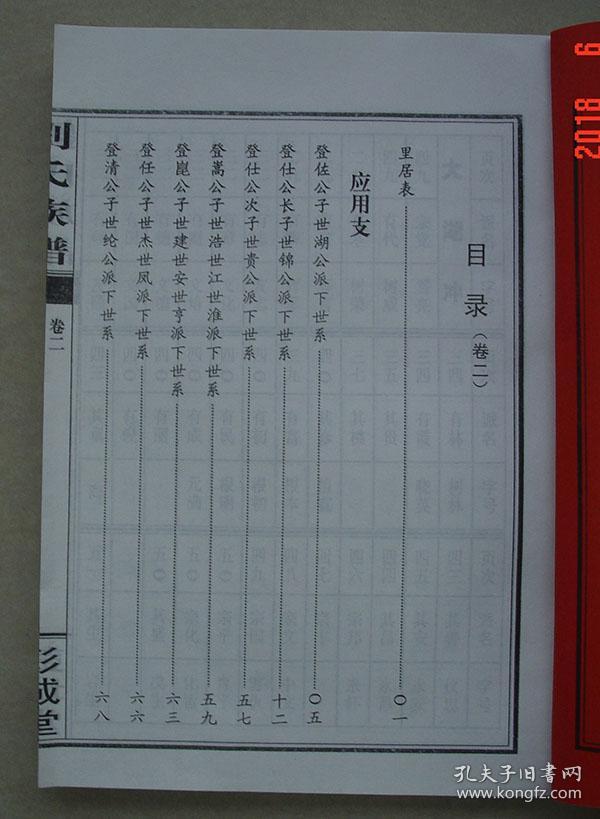 目录(卷二)
里居表 〇一
应用支
登佐公子世湖公派下世系 〇五
登仕公长子世锦公派下世系 十二
登仕公次子世贵公派下世系 五七
登嵩公子世浩世江世淮派下世系 五九
登崑公子世建世安世亨派下世系 六三
登任公子世杰世凤派下世系 六六
登清公子世纶公派下世系 六八
刘氏族谱
卷二
彭城堂
2018 6
孔夫子旧书网
www.kongfz.com